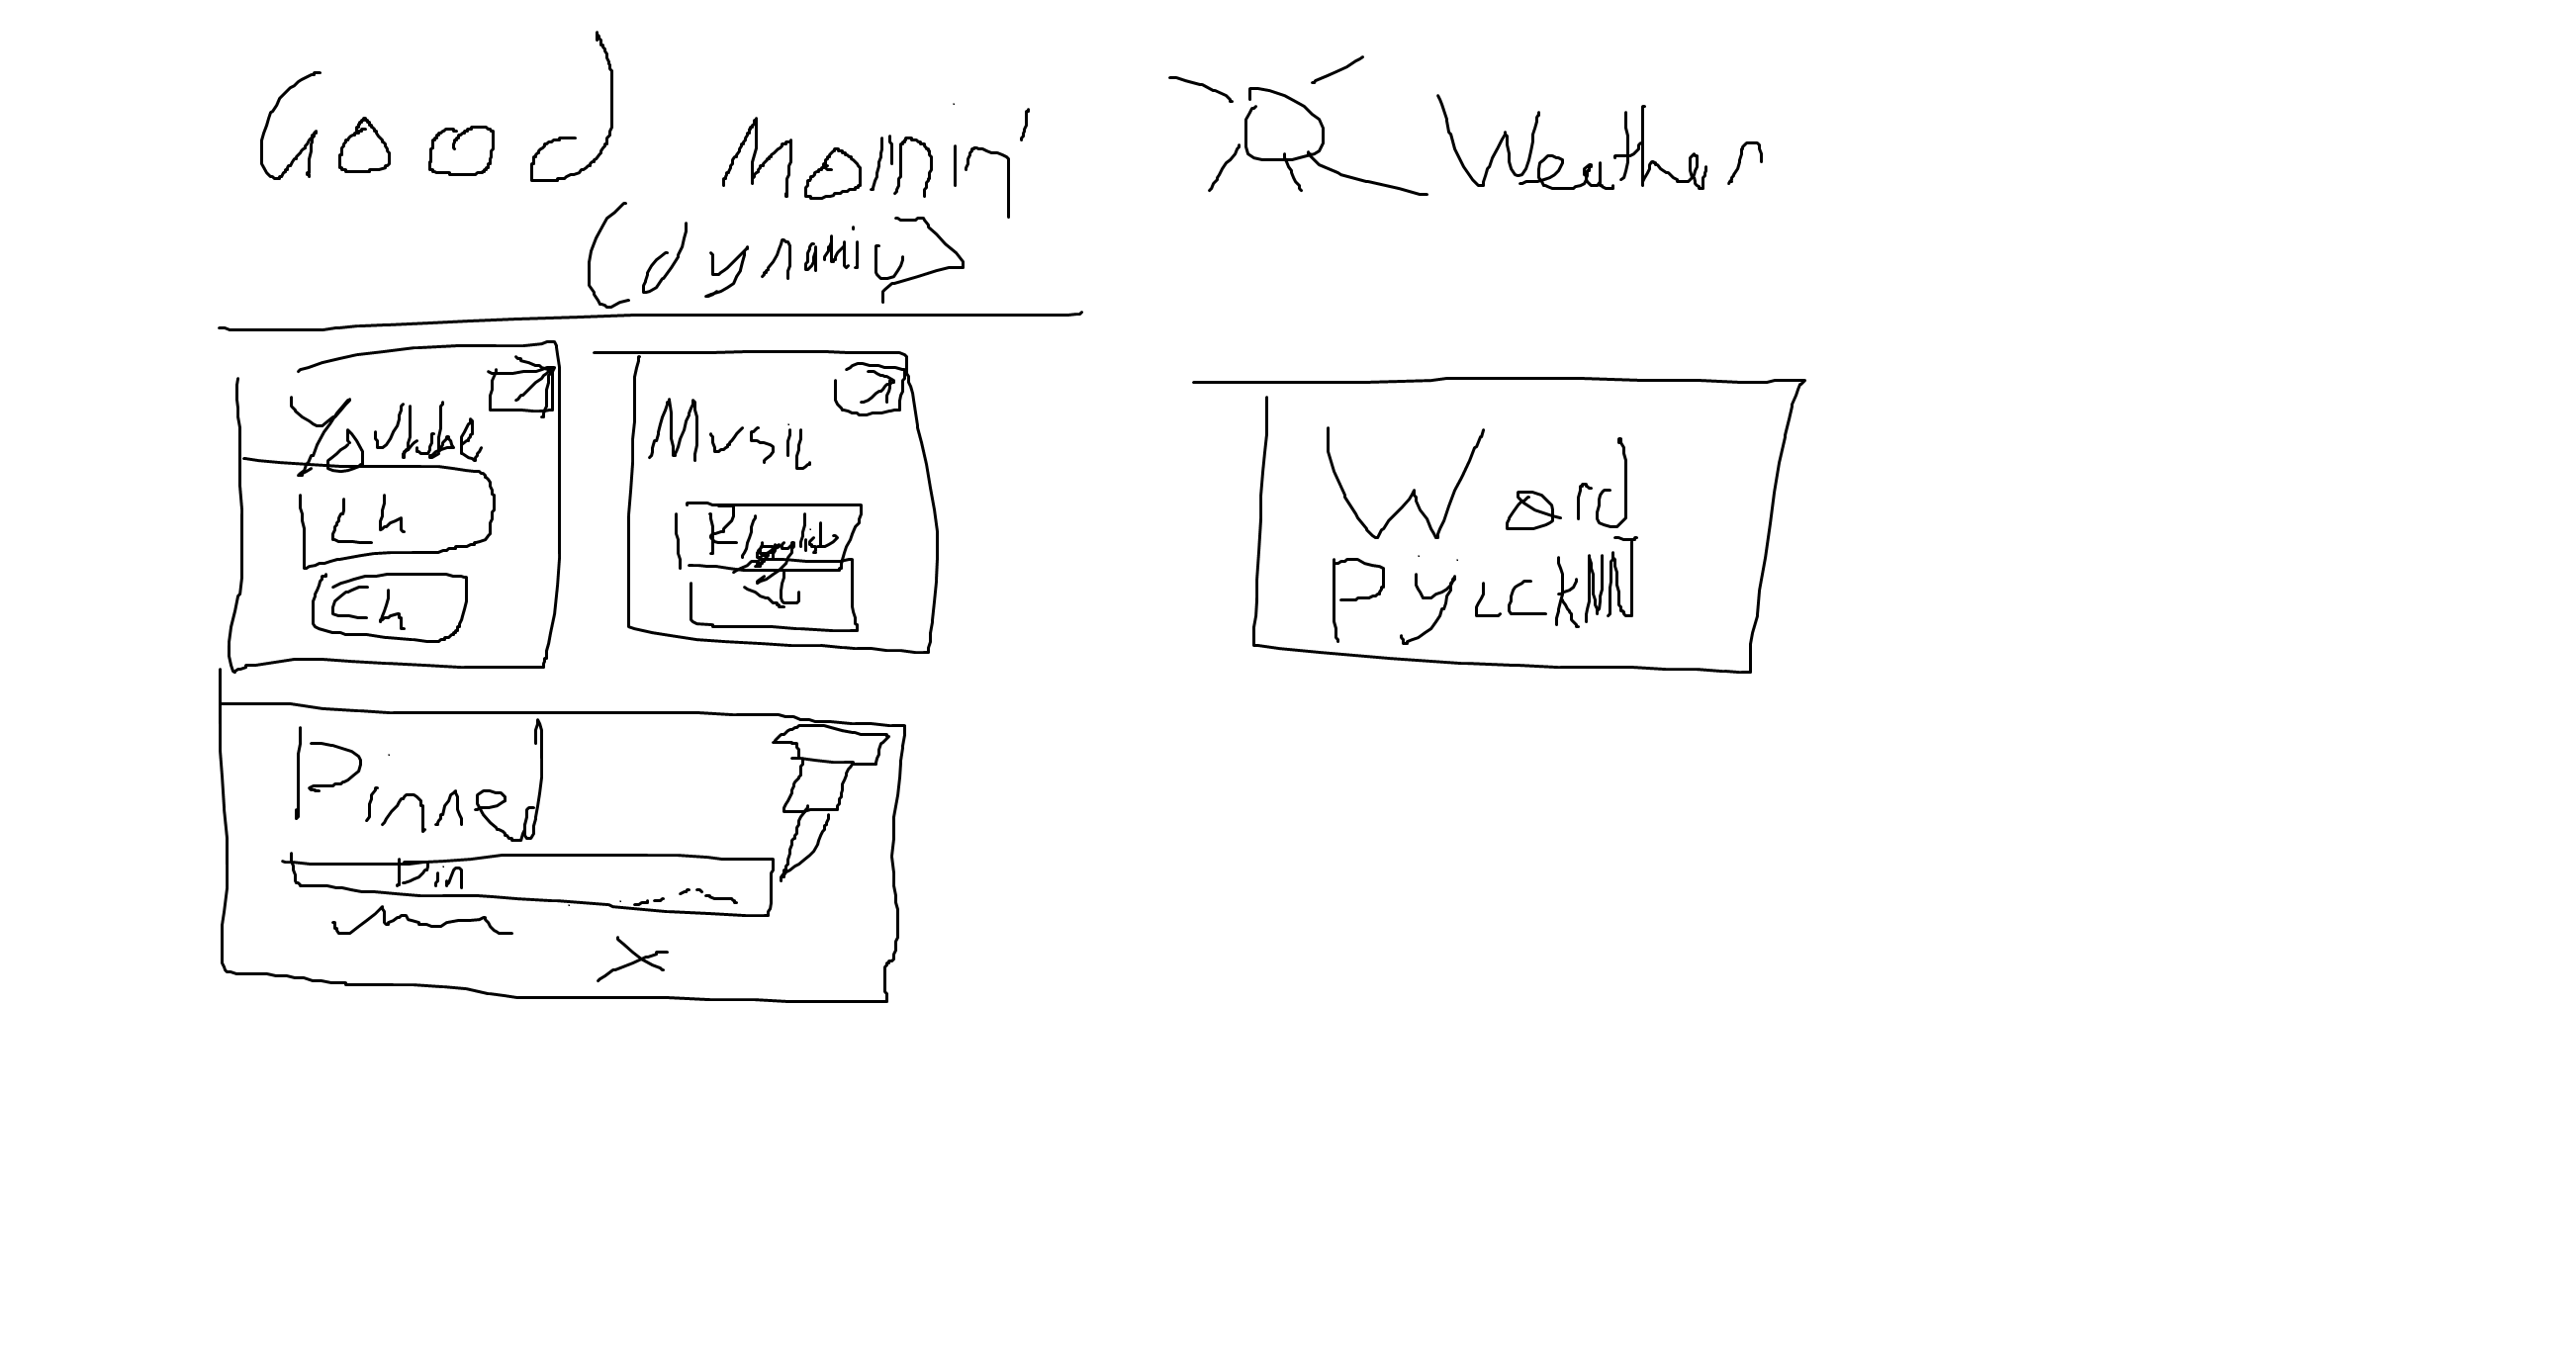 Good Mornin'
(dynamic)
Weather
Youtube
Ch
Ch
Music
Playlist
Word
Русский
Pinned
Pin